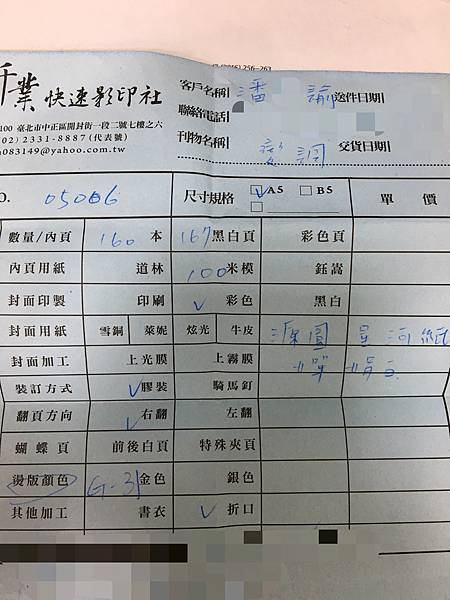 (2016) 256-263
業 快速影印社
100 臺北市中正區開封街一段二號七樓之六
02) 2331-8887 (代表號)
083149@yahoo.com.tw
客戶名稱 潘 諭 送件日期
聯絡電話
刊物名稱 交貨日期
O. 05006 尺寸規格 ✓A5 □B5 單價
□
數量/內頁 160 本 167 黑白頁 彩色頁
內頁用紙 道林 100 米模 鈺嵩
封面印製 印刷 ✓ 彩色 黑白
封面用紙 雪銅 萊妮 炫光 牛皮 星河紙
封面加工 上光膜 上霧膜
裝訂方式 ✓膠裝 騎馬釘
翻頁方向 ✓右翻 左翻
蝴蝶頁 前後白頁 特殊夾頁
燙版顏色 G-31 金色 銀色
其他加工 書衣 ✓ 折口